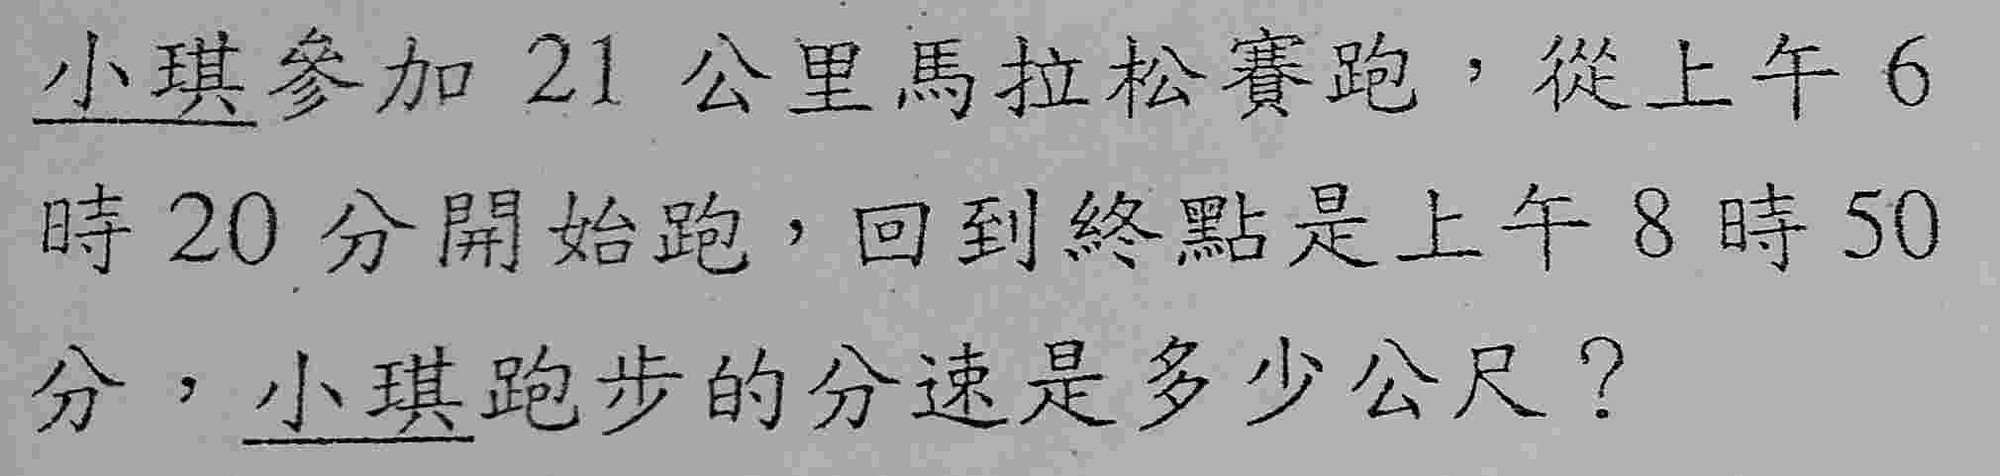 小琪參加 21 公里馬拉松賽跑，從上午 6
時 20 分開始跑，回到終點是上午 8 時 50
分，小琪跑步的分速是多少公尺？